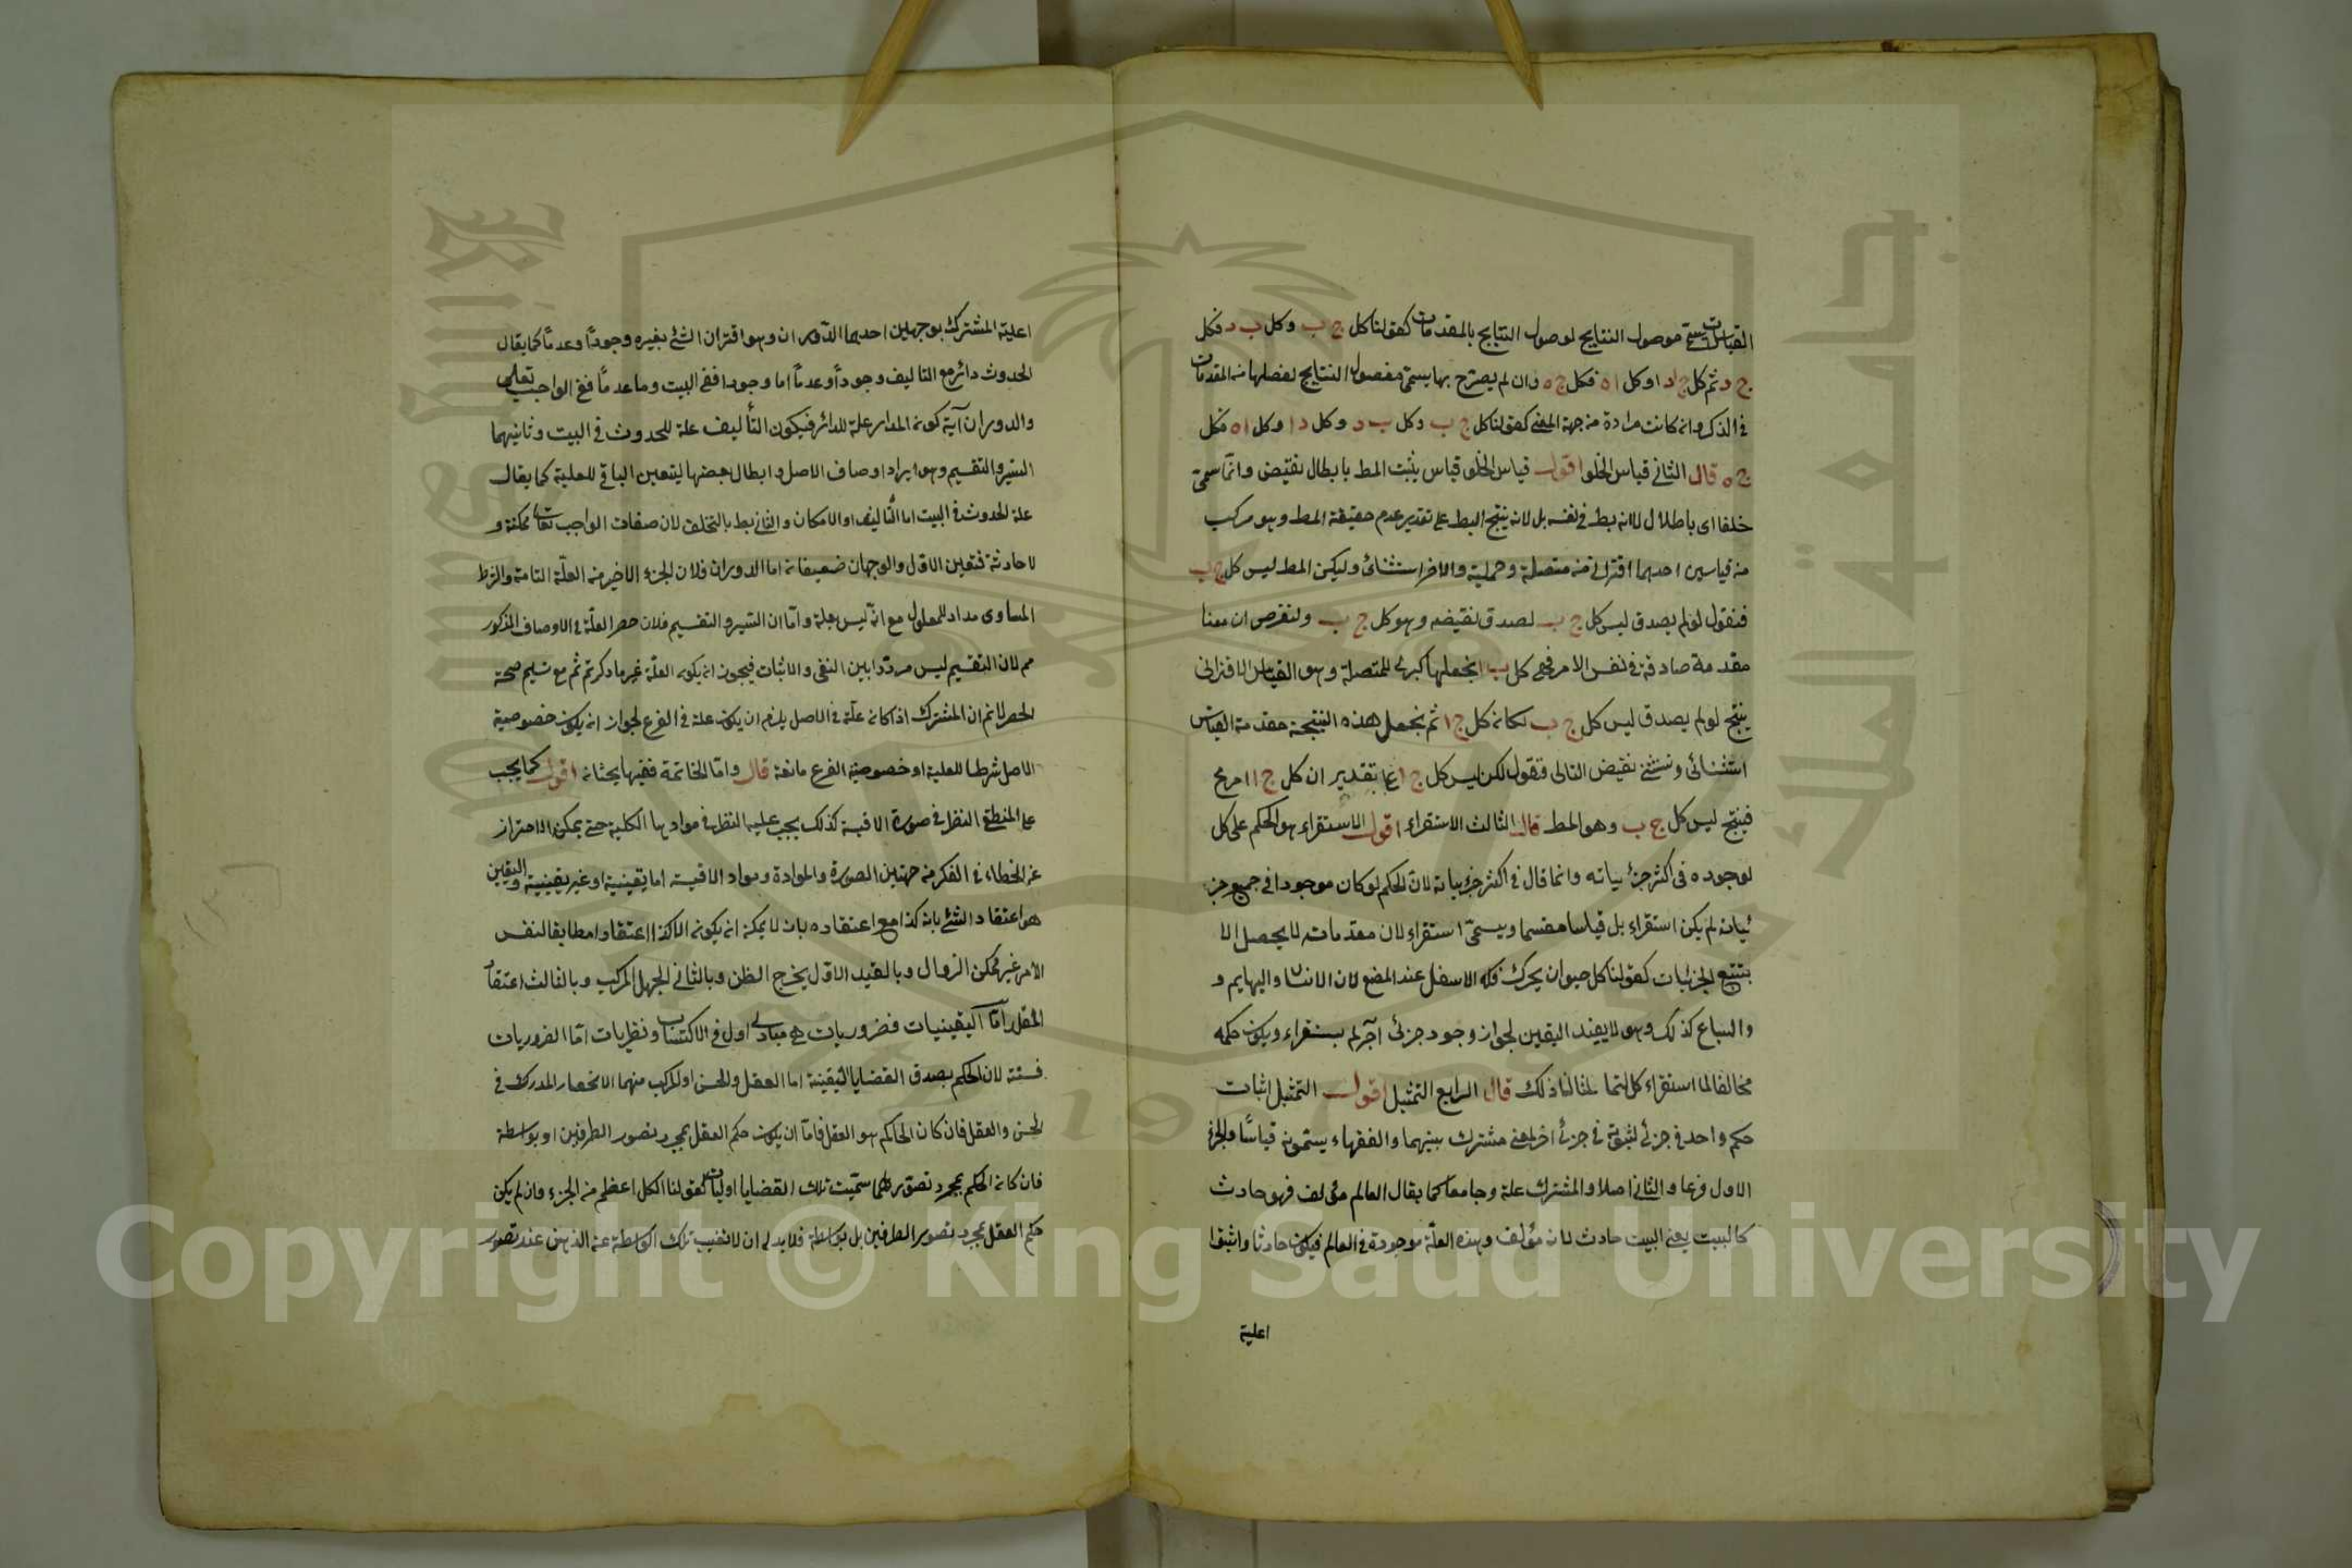 القياسات سمى موصول النتايج لوصول النتايج بالمقدمات كقولنا كل ج ب وكل ب د فكل
ج د ثم كل ج د او كل ا ه فكل ج ه وان لم يصرح بها يسمى مفصول النتايج لفصلها من المقدمات
في الذكر وان كانت مرادة من جهة المعنى كقولنا كل ج ب وكل ب د وكل د ا وكل ا ه فكل
ج ه قال الثاني قياس الخلف اقول قياس الخلف قياس يثبت المط بابطال نقيض وانما سمى
خلفا اى باطلا لا لانه بط في نفسه بل لانه ينتج البط على تقدير عدم حقيقة المط وهو مركب
من قياسين احدهما اقترانى من متصلة وحملية والاخر استثنائى وليكن المط ليس كل ج ب
فنقول لو لم يصدق ليس كل ج ب لصدق نقيضه وهو كل ج ب ولنفرض ان معنا
مقدمة صادقة في نفس الامر فهى كل ب ا نجعلها كبرى للمتصلة وهو القياس الاقترانى
ينتج لو لم يصدق ليس كل ج ب لكان كل ج ا ثم نجعل هذه النتيجة مقدمة القياس
استثنائى ونستثنى نقيض التالى فنقول لكن ليس كل ج ا على تقدير ان كل ج ا امر مح
فينتج ليس كل ج ب وهو المط قال الثالث الاستقراء اقول الاستقراء هو الحكم على كل
لوجوده فى اكثر جزئياته وانما قال فى اكثر جزئياته لان الحكم لو كان موجودا فى جميع جز
ئياته لم يكن استقراء بل قياسا مقسما ويسمى استقراء لان مقدماته لا يحصل الا
بتتبع الجزئيات كقولنا كل حيوان يحرك فكه الاسفل عند المضغ لان الانسان والبهايم و
والسباع كذلك وهو لا يفيد اليقين لجواز وجود جزئى آخر لم يستقراء ويكون حكمه
مخالفا لما استقراء كالتمساح مثالنا ذلك قال الرابع التمثيل اقول التمثيل اثبات
حكم واحد فى جزئى لثبوته فى جزئى اخر لمعنى مشترك بينهما والفقهاء يسمونه قياسا والجزئى
الاول فرعا والثانى اصلا والمشترك علة وجامعا كما يقال العالم مؤلف فهو حادث
كالبيت يعنى البيت حادث لانه مؤلف وهذه العلة موجودة فى العالم فيكون حادثا واثبتوا
اعلية
اعلية المشترك بوجهين احدهما الدوران وهو اقتران الشئ بغيره وجودا وعدما كما يقال
الحدوث دائر مع التاليف وجودا وعدما اما وجودا ففى البيت وما عدما ففى الواجب تعالى
والدوران آية كون المدار علة للدائر فيكون التأليف علة للحدوث فى البيت وثانيهما
السبر والتقسيم وهو ايراد اوصاف الاصل وابطال بعضها ليتعين الباقى للعلية كما يقال
علة الحدوث فى البيت اما التاليف او الامكان والثانى بط بالتخلف لان صفات الواجب تعالى ممكنة و
لا حادثة فتعين الاول والوجهان ضعيفان اما الدوران فلان الجزء الاخير من العلة التامة والشرط
المساوى مدار للمعلول مع انه ليس بعلة واما ان السبر والتقسيم فلان حصر العلة فى الاوصاف المذكور
مم لان التقسيم ليس مرددا بين النفى والاثبات فيجوز ان يكون العلة غير ما ذكرتم ثم مع تسليم صحة
الحصر لا نم ان المشترك اذا كان علة فى الاصل يلزم ان يكون علة فى الفرع لجواز ان يكون خصوصية
الاصل شرطا للعلية او خصوصية الفرع مانعة قال واما الخاتمة ففيها بحثان اقول كما يجب
على المنطقى النظر فى صورة الاقيسة كذلك يجب عليه النظر فى موادها الكلية حتى يمكن الاحتراز
عن الخطاء فى الفكر من جهتين الصورة والموادة ومواد الاقيسة اما يقينية او غير يقينية واليقين
هو اعتقاد الشئ بانه كذا مع اعتقاده بان لا يمكن ان يكون الا كذا اعتقادا مطابقا لنفس
الامر غير ممكن الزوال وبالقيد الاول يخرج الظن وبالثانى الجهل المركب وبالثالث اعتقاد
المقلد اما اليقينيات فضروريات هى مبادى اول فى الاكتساب ونظريات اما الضروريات
فستة لان الحكم بصدق القضايا اليقينية اما العقل والحس او المركب منهما الانحصار المدرك فى
الحس والعقل فان كان الحاكم هو العقل فاما ان يكون حكم العقل بمجرد تصور الطرفين او بواسطة
فان كان الحكم بمجرد تصورهما سميت تلك القضايا اوليات كقولنا الكل اعظم من الجزء وان لم يكن
حكم العقل بمجرد تصور الطرفين بل بواسطة فلا بد له ان لا تغيب تلك الواسطة عن الذهن عند تصور
Copyright © King Saud University